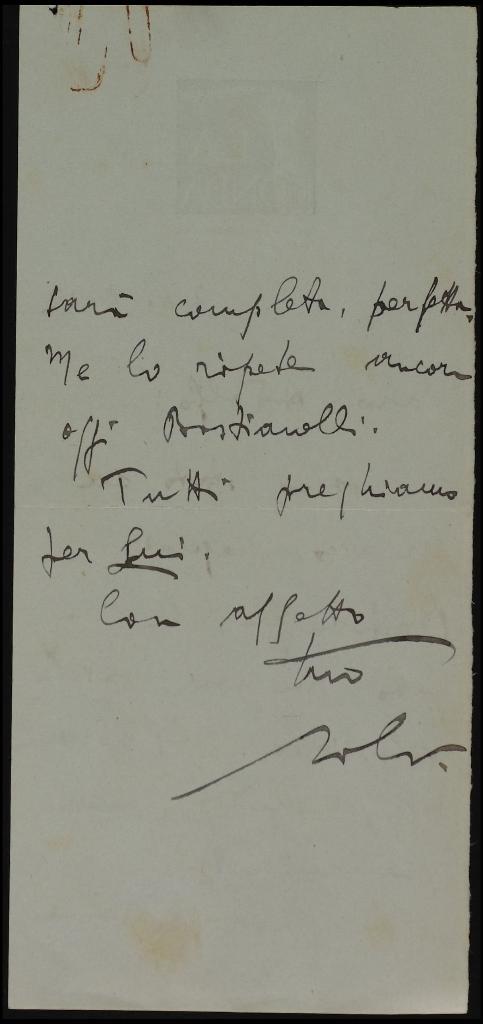 sarà completa, perfetta.
Me lo ripete ancora
oggi Bastianelli.
Tutti preghiamo
per Lui.
Con affetto
tuo